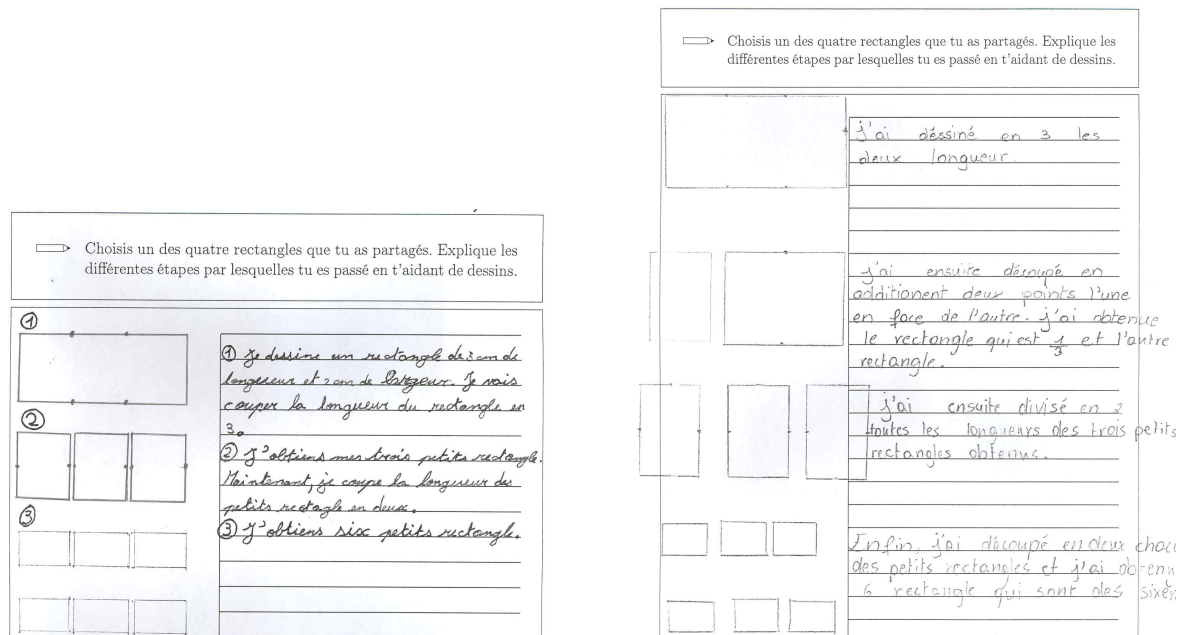 Choisis un des quatre rectangles que tu as partagés. Explique les
différentes étapes par lesquelles tu es passé en t'aidant de dessins.
①
②
③
① Je dessine un rectangle de 3 cm de
longueur et 2 cm de largeur. Je vais
couper la longueur du rectangle en
3.
② J'obtiens mes trois petits rectangle.
Maintenant, je coupe la longueur des
petits rectagle en deux.
③ J'obtiens six petits rectangle.
Choisis un des quatre rectangles que tu as partagés. Explique les
différentes étapes par lesquelles tu es passé en t'aidant de dessins.
j'ai déssiné en 3 les
deux longueur.
j'ai ensuite découpé en
additionent deux points l'une
en face de l'autre. j'ai obtenue
le rectangle qui est 1/3 et l'autre
rectangle.
j'ai ensuite divisé en 2
toutes les longueurs des trois petits
rectangles obtenue.
Enfin, j'ai découpé en deux
des petits rectangles et j'ai
6 rectangle qui sont des